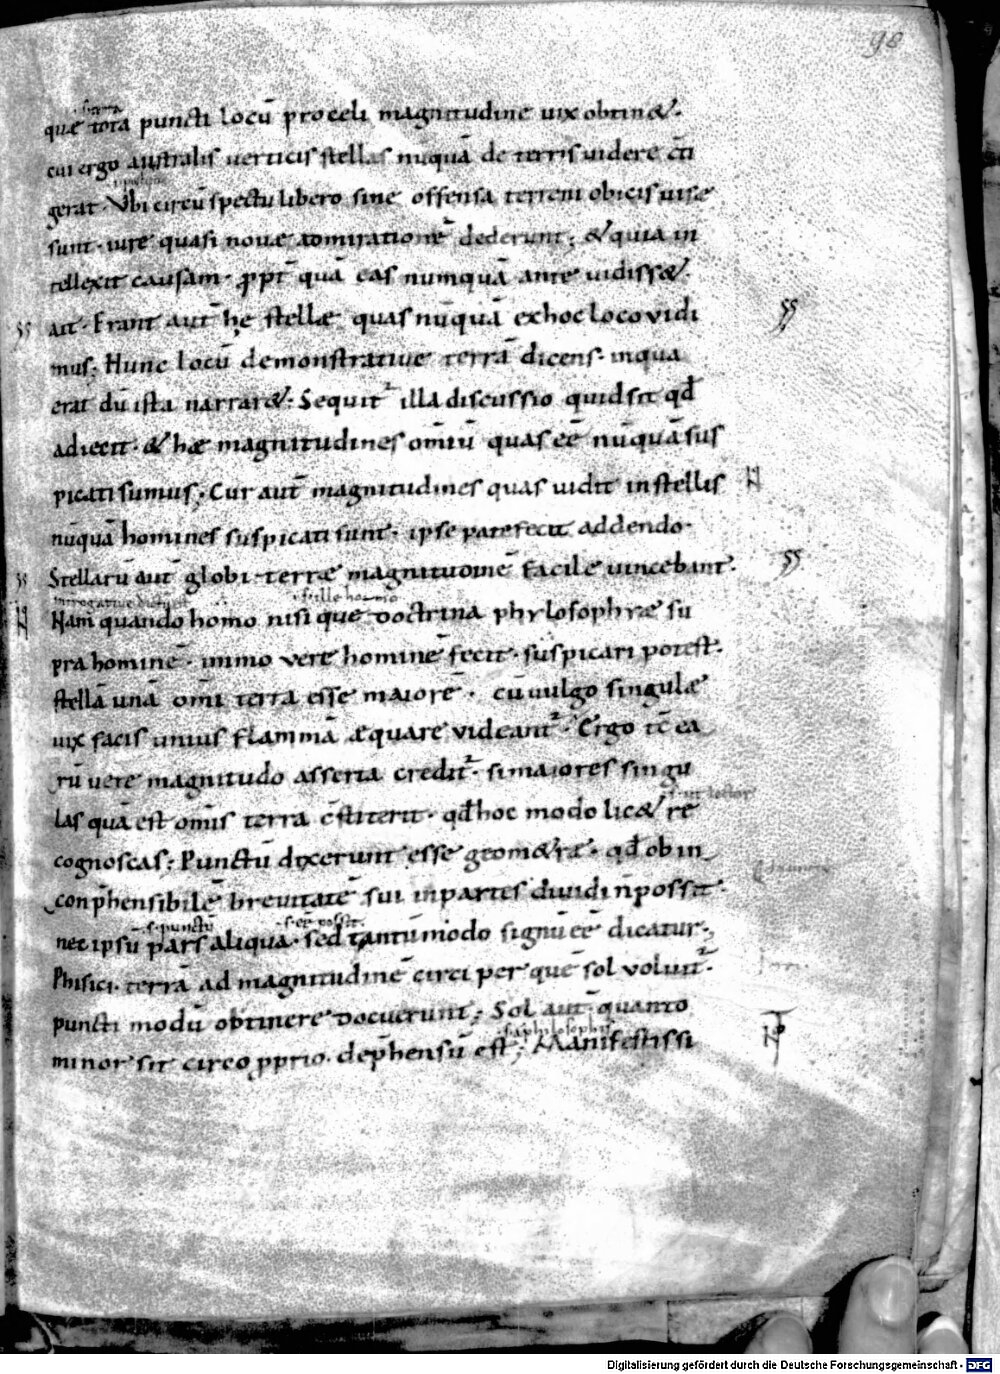 98
quae tota puncti locū pro celi magnitudine uix obtin&.
cui ergo australis uerticis stellas nūquā de terris uidere cōti
gerat. Vbi circūspectu libero sine offensa terreni obicis uise
sunt. iure quasi nouae admirationē dederunt; & quia in
tellexit causam. ꝓpt quā eas numquā ante uidiss&.
ait. Erant aut hę stellae quas nūquā ex hoc loco vidi
mus; Hunc locū demonstratiue terrā dicens. in qua
erat dū ista narrar&. Sequit illa discussio quid sit qđ
adiecit. & hae magnitudines omiū quas eē nūquā sus
picati sumus; Cur aut magnitudines quas uidit in stellis
nūquā homines suspicati sunt. ipse patefecit addendo.
Stellarū aut globi. terrae magnitudinē facile vincebant.
s. ille homo
Nam quando homo nisi que doctrina phylosophyae su
pra hominē. immo vere hominē fecit. suspicari potest.
stellā unā omi terra esse maiorē. cū uulgo singulae
uix facis unius flammā aequare videant. Ergo tc̄ ea
rū vere magnitudo asserta credit. si maiores singu
s. ut lector
las quā est omis terra cstiterit. qđ hoc modo lic& re
cognoscas; Punctū dixerunt esse geom&rae. qđ ob in
conp̄hensibilē breuitatē sui in partes diuidi n̄ possit.
s. punctū s. eē possit
nec ipsū pars aliqua. sed tantūmodo signū eē dicatur;
Phisici. terrā ad magnitudinē circi per quē sol voluit.
puncti modū obtinere docuerunt; Sol aut. quanto
s. a philosophis
minor sit circo ꝓprio. dep̄hensū est; Manifestissi
Digitalisierung gefördert durch die Deutsche Forschungsgemeinschaft - DFG